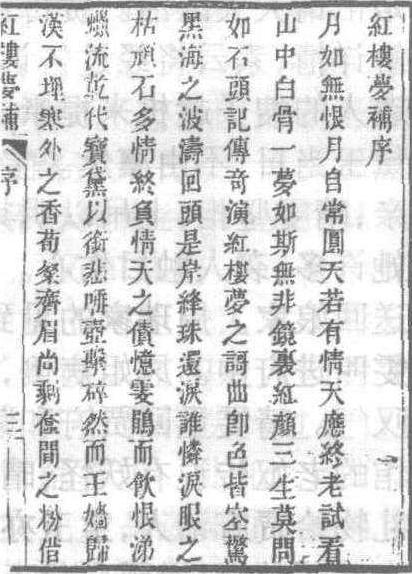 紅樓夢補序
月如無恨月自常圓天若有情天應終老試看
山中白骨一夢如斯無非鏡裏紅顏三生莫問
如石頭記傳奇演紅樓夢之謌曲卽色皆空驚
黑海之波濤回頭是岸絳珠還淚誰憐淚眼之
枯頑石多情終負情天之債憶雯鵑而飲恨涕
蠟流乾代寶黛以銜悲唾壺擊碎然而王嬙歸
漢不埋塞外之香荀粲齊眉尚剩奩間之粉借
紅樓夢補
序
三
一